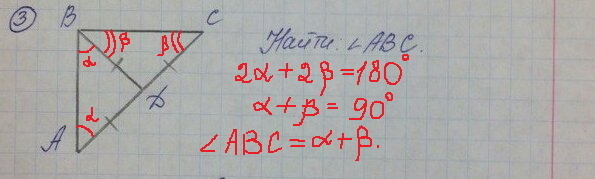 ③ B C
β β
α
Найти: ∠ABC.
2α + 2β = 180°
D
α + β = 90°
α
∠ABC = α + β.
A